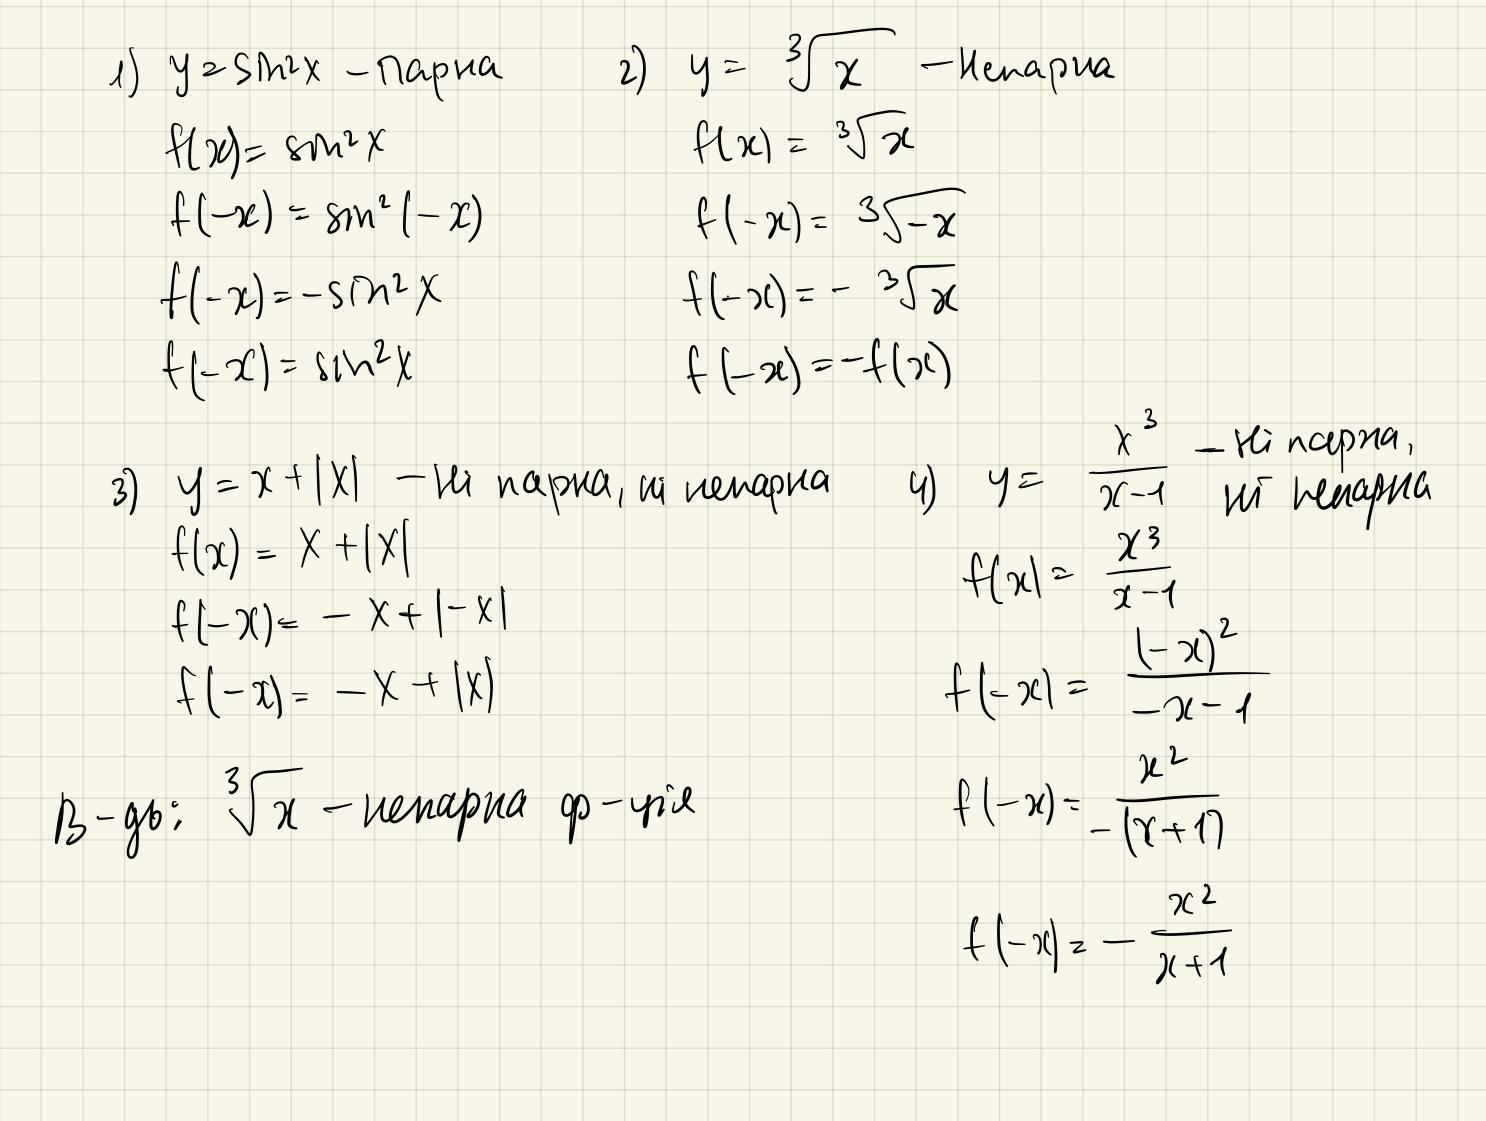 1) y = sin²x – парна
f(x) = sin²x
f(-x) = sin²(-x)
f(-x) = -sin²x
f(-x) = sin²x
2) y = ∛x – Непарна
f(x) = ∛x
f(-x) = ∛-x
f(-x) = - ∛x
f(-x) = -f(x)
3) y = x + |x| – ні парна, ні непарна
f(x) = x + |x|
f(-x) = - x + |-x|
f(-x) = - x + |x|
4) y = x³/(x-1) – ні парна,
ні непарна
f(x) = x³/(x-1)
f(-x) = (-x)²/(-x-1)
f(-x) = x²/(-(x+1))
f(-x) = - x²/(x+1)
В-дь: ∛x – непарна ф-ція